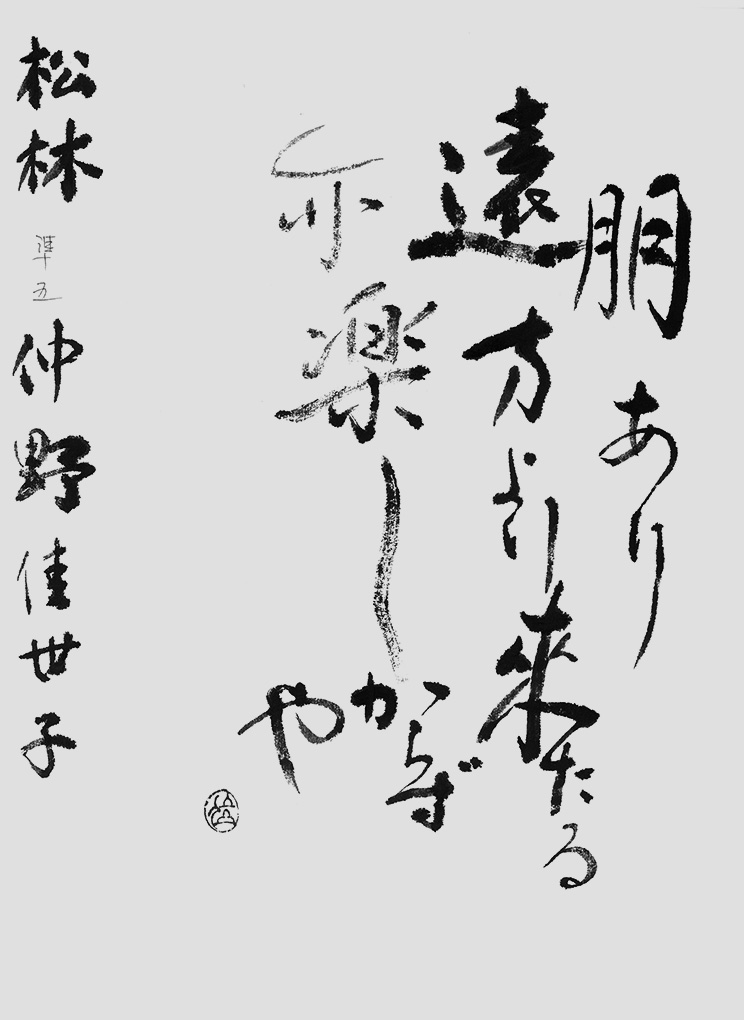 朋あり
遠方より來たる
亦楽しからずや
松林 準五 仲野佳世子